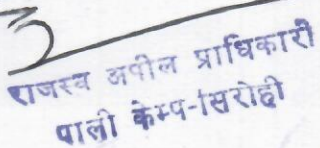 राजस्व अपील प्राधिकारी
पाली केम्प-सिरोही